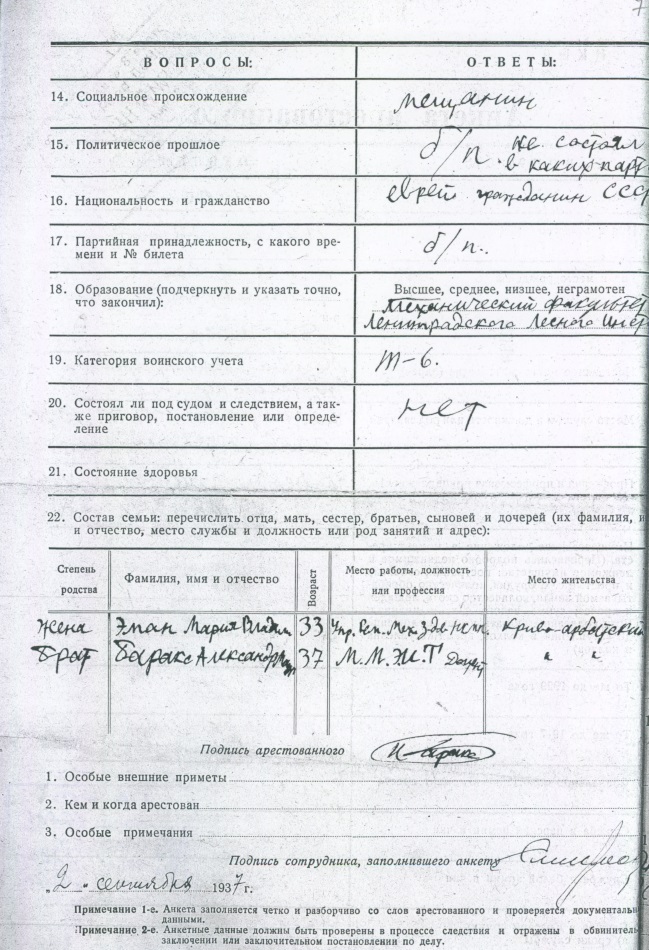 7
ВОПРОСЫ: ОТВЕТЫ:
14. Социальное происхождение мещанин
15. Политическое прошлое б/п. не состоял
в каких парт
16. Национальность и гражданство еврей гражданин СССР
17. Партийная принадлежность, с какого вре-
мени и № билета б/п.
18. Образование (подчеркнуть и указать точно,
что закончил): Высшее, среднее, низшее, неграмотен
Механический факультет
Ленинградского Лесного Инст
19. Категория воинского учета Т-6.
20. Состоял ли под судом и следствием, а так-
же приговор, постановление или опреде-
ление нет
21. Состояние здоровья
22. Состав семьи: перечислить отца, мать, сестер, братьев, сыновей и дочерей (их фамилия, и
и отчество, место службы и должность или род занятий и адрес):
Степень
родства Фамилия, имя и отчество Возраст Место работы, должность
или профессия Место жительства
Жена Мария 33 Криво-арбатский
Брат Баракс Александр 37 " "
Подпись арестованного
1. Особые внешние приметы
2. Кем и когда арестован
3. Особые примечания
Подпись сотрудника, заполнившего анкету
"2" сентября 1937 г.
Примечание 1-е. Анкета заполняется четко и разборчиво со слов арестованного и проверяется документаль
данными.
Примечание 2-е. Анкетные данные должны быть проверены в процессе следствия и отражены в обвинитель
заключении или заключительном постановлении по делу.